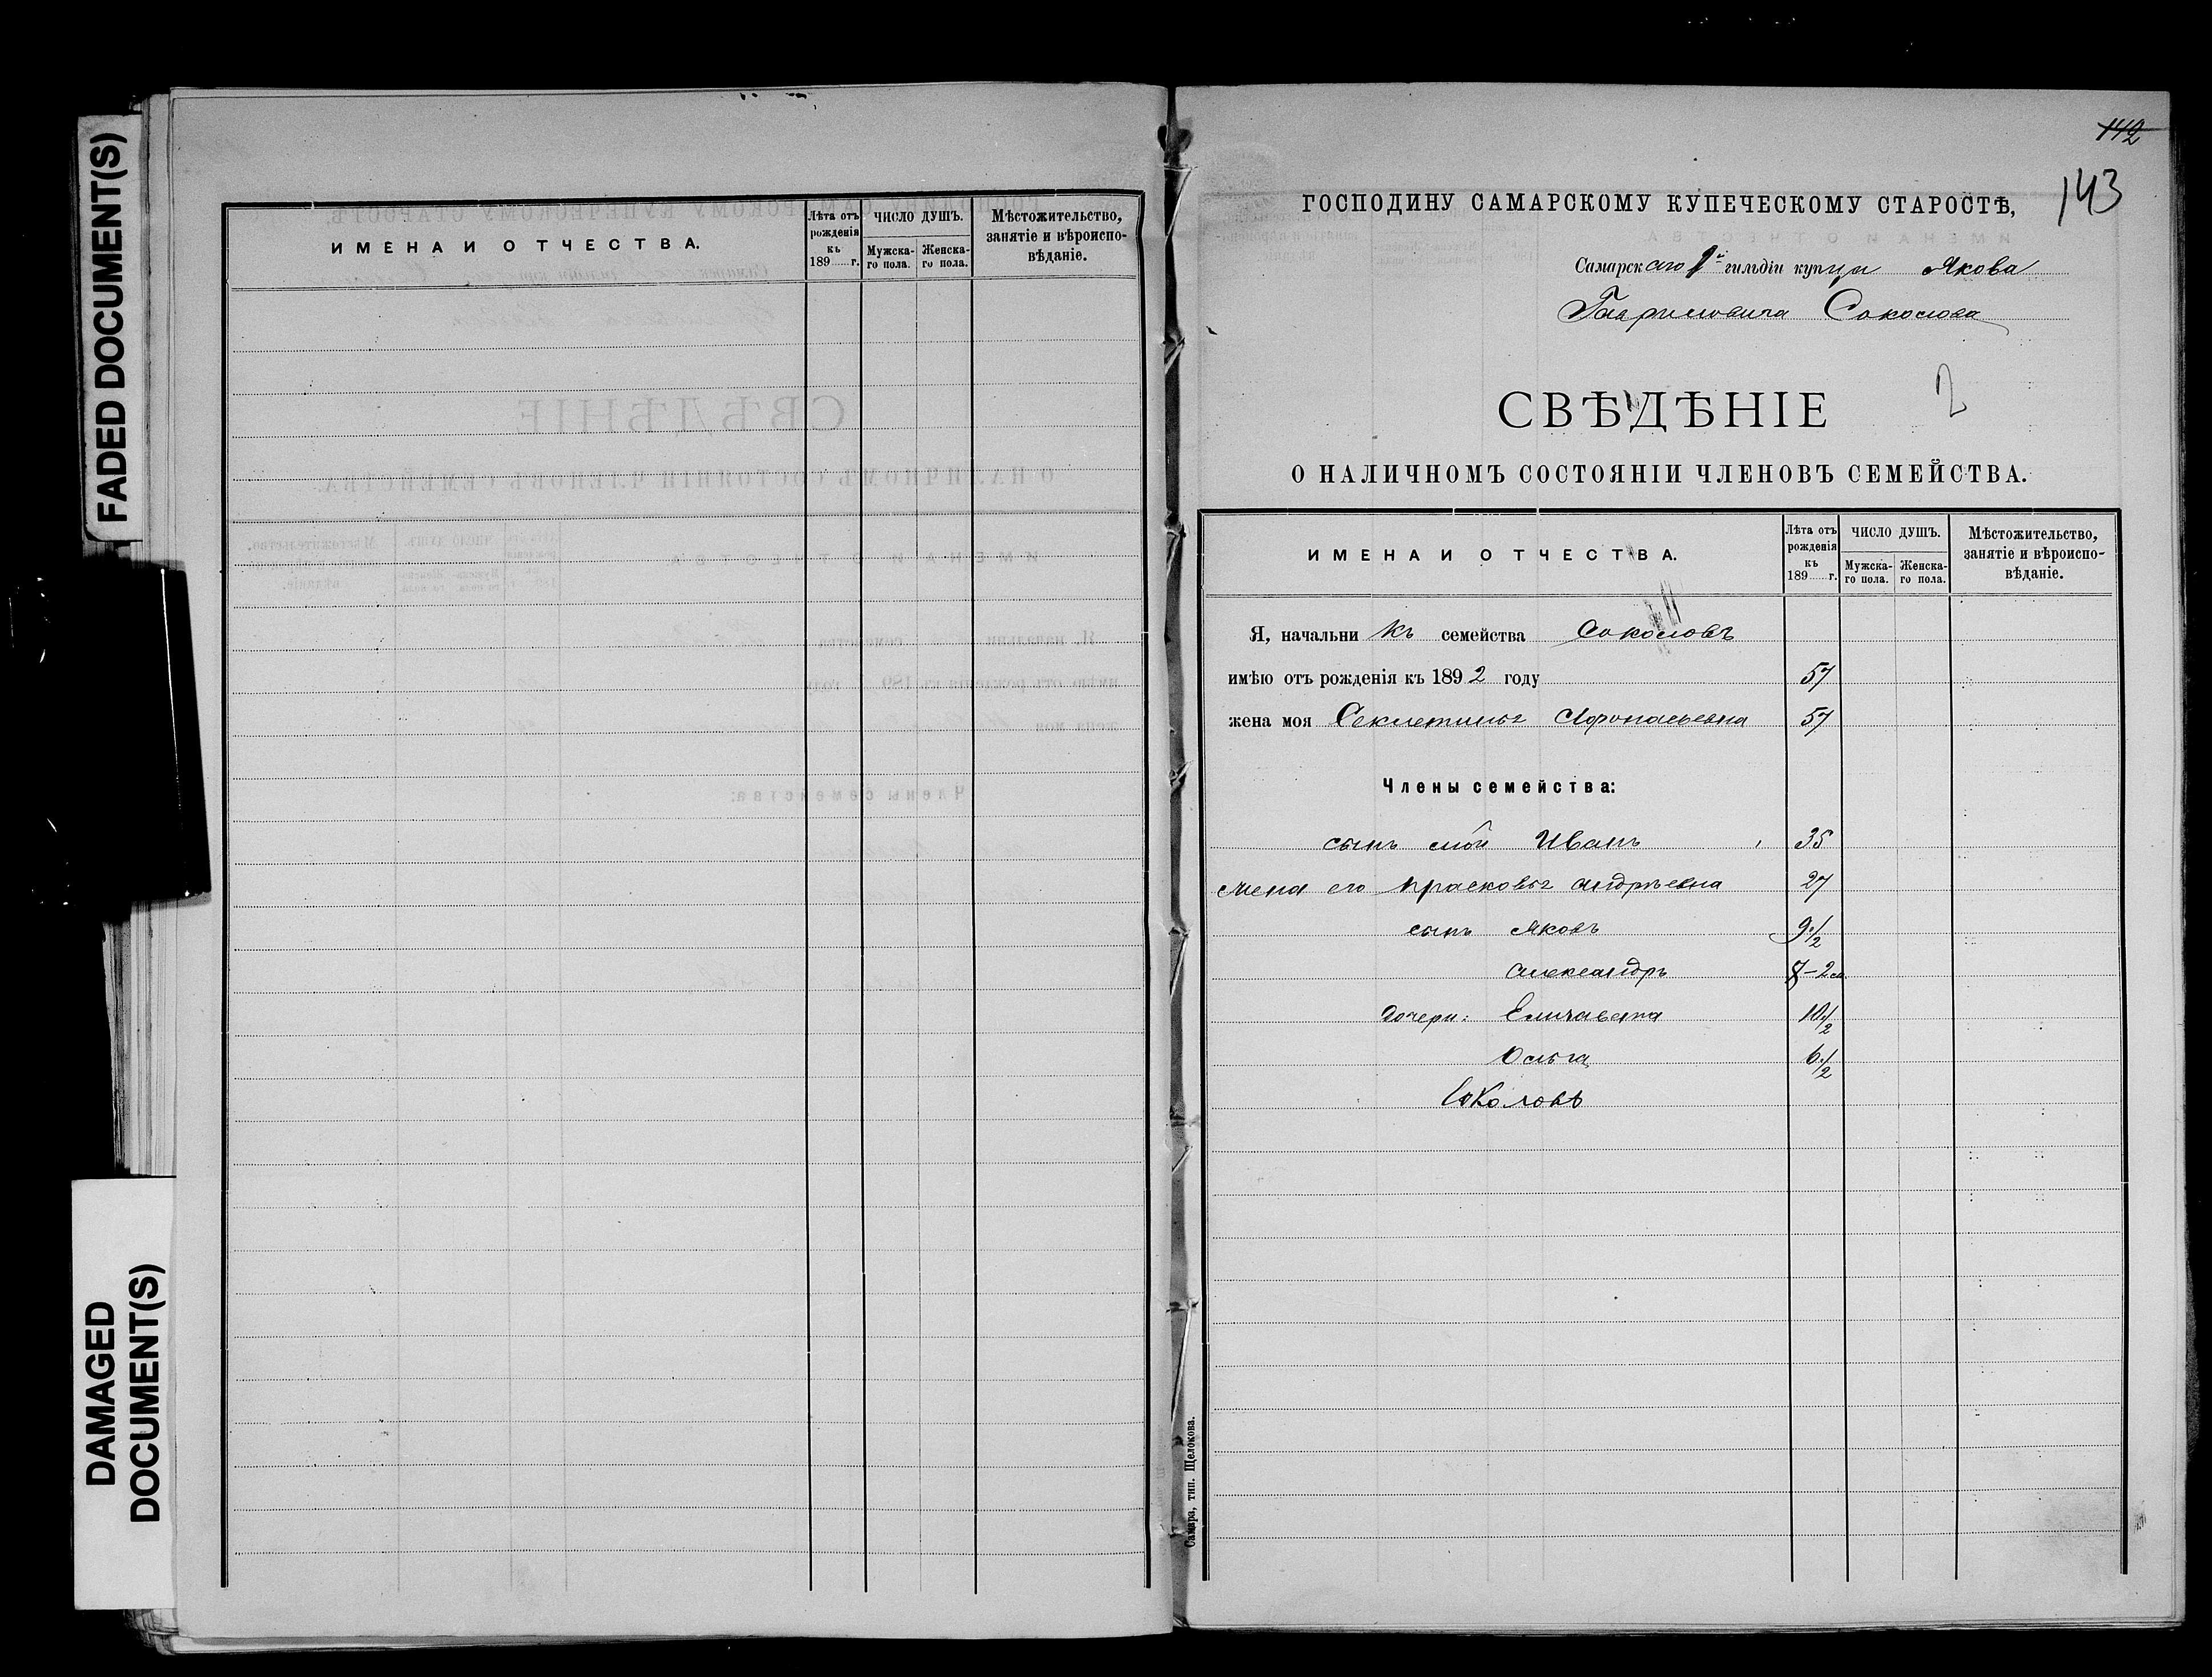 FADED DOCUMENT(S)
DAMAGED
DOCUMENT(S)
ИМЕНА И ОТЧЕСТВА.
Лѣта отъ рожденія къ 189 г.
ЧИСЛО ДУШЪ.
Мужска-го пола.
Женска-го пола.
Мѣстожительство, занятіе и вѣроиспо-вѣданіе.
142
143
ГОСПОДИНУ САМАРСКОМУ КУПЕЧЕСКОМУ СТАРОСТѢ,
Самарскаго гильдіи купца Якова
Гавриловича Соколова
2
СВѢДѢНІЕ
О НАЛИЧНОМЪ СОСТОЯНІИ ЧЛЕНОВЪ СЕМЕЙСТВА.
ИМЕНА И ОТЧЕСТВА.
Лѣта отъ рожденія къ 189 г.
ЧИСЛО ДУШЪ.
Мужска-го пола.
Женска-го пола.
Мѣстожительство, занятіе и вѣроиспо-вѣданіе.
Я, начальникъ семейства Соколовъ
имѣю отъ рожденія къ 1892 году 57
жена моя Секлетинья Афонасьевна 57
Члены семейства:
сынъ мой Иванъ 35
жена его Прасковья Андрѣевна 27
сынъ Яковъ 9 1/2
Александръ
дочери: Елизавета 10 1/2
Ольга 6 1/2
Соколовъ
Самара, тип. Щелокова.